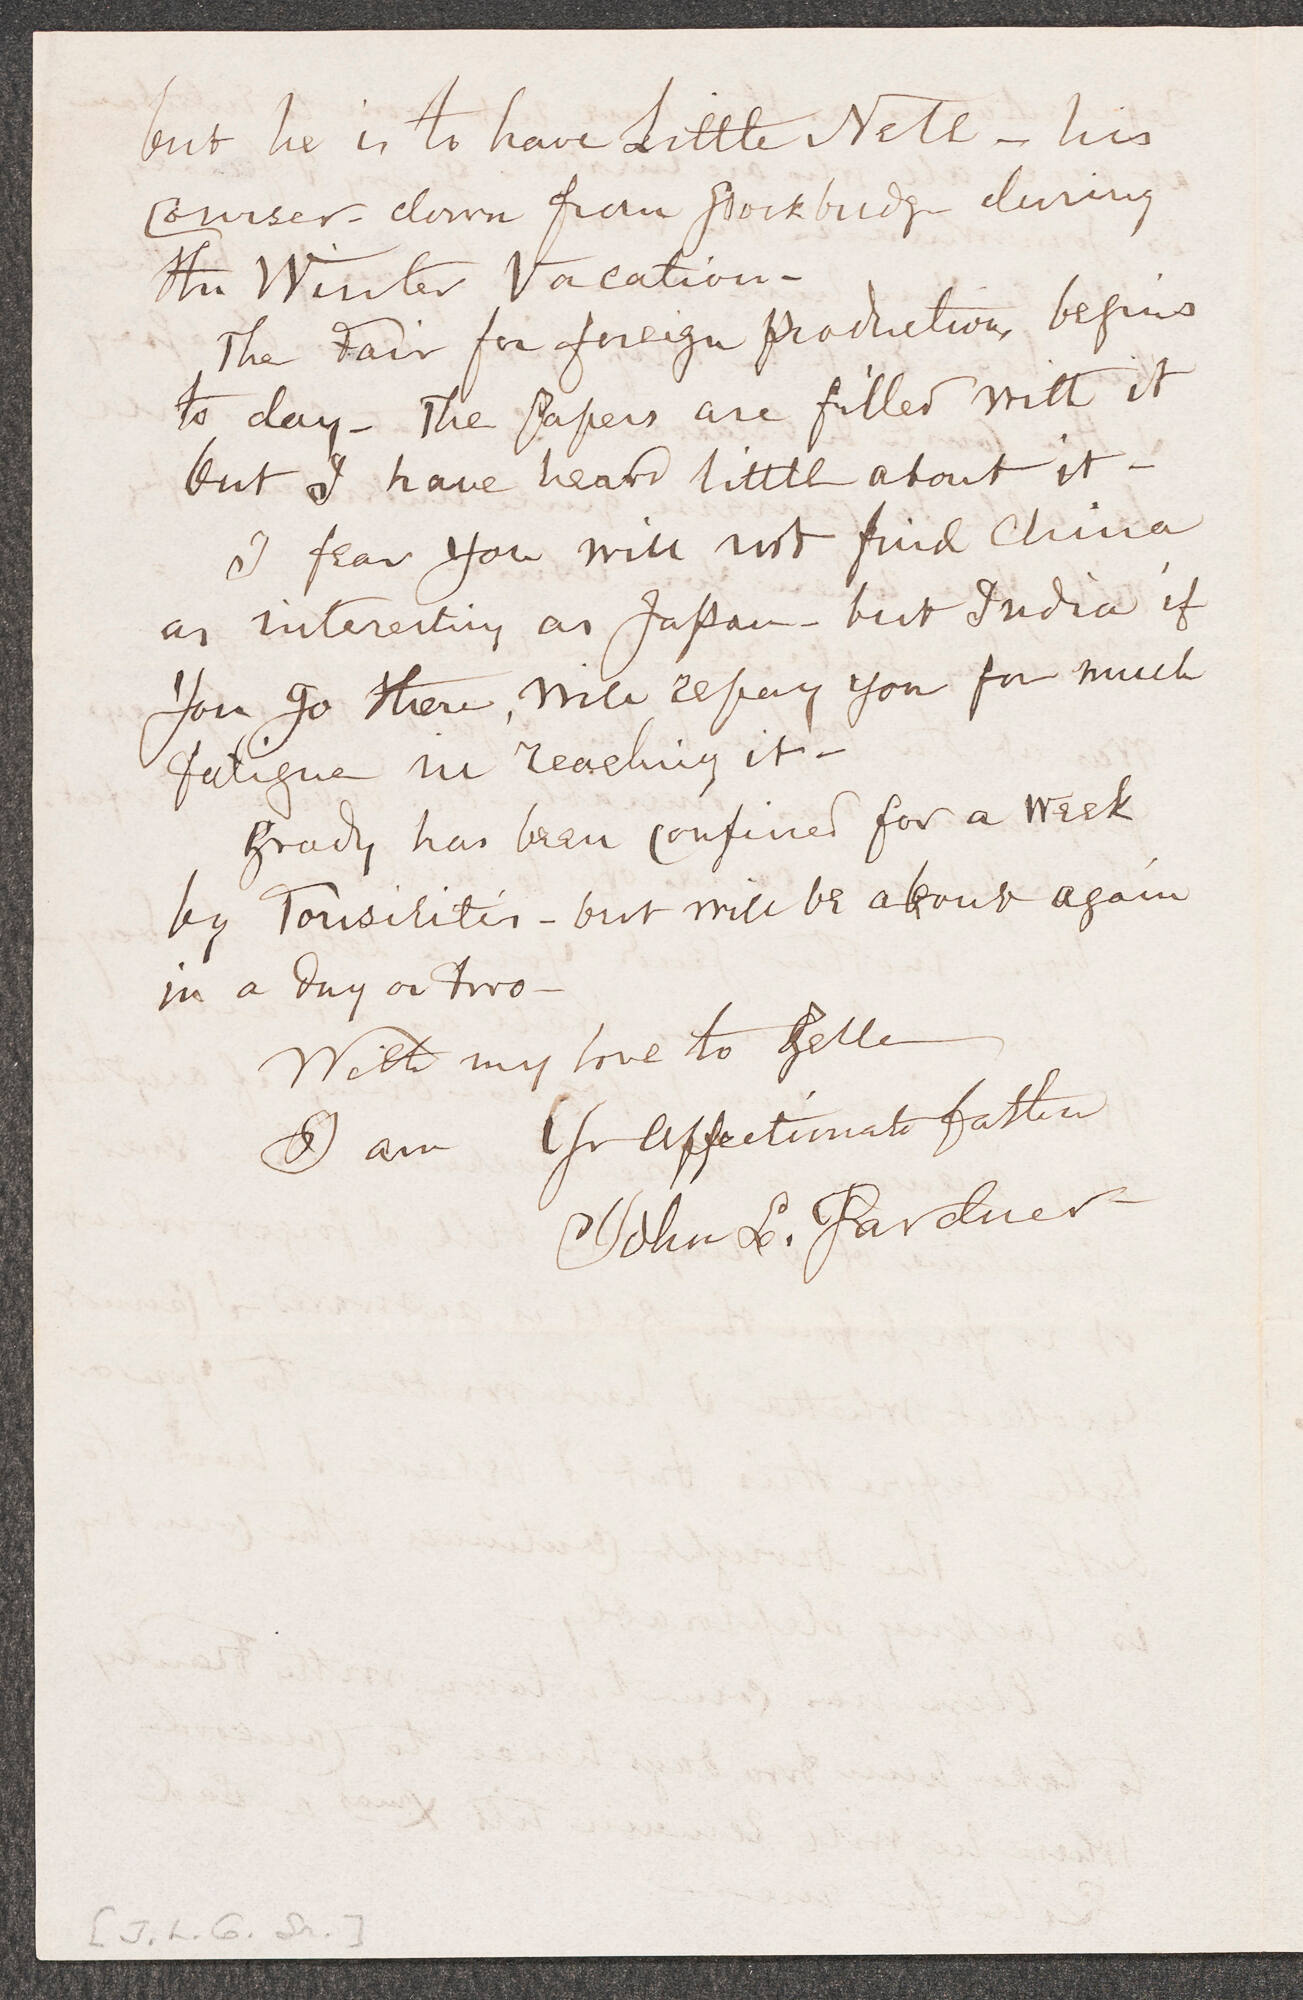 but he is to have Little Nell - his
courser - down from Stockbridge during
the Winter Vacation -
The Fair for foreign productions begins
to day - The Papers are filled with it
but I have heard little about it -
I fear you will not find China
as interesting as Japan - but India if
you go there, will repay you for much
fatigue in reaching it -
Brady has been confined for a week
by Tonsilitis - but will be about again
in a day or two -
With my love to Belle
I am Yr affectionate father
John L. Gardner
[J. L. G. Sr.]